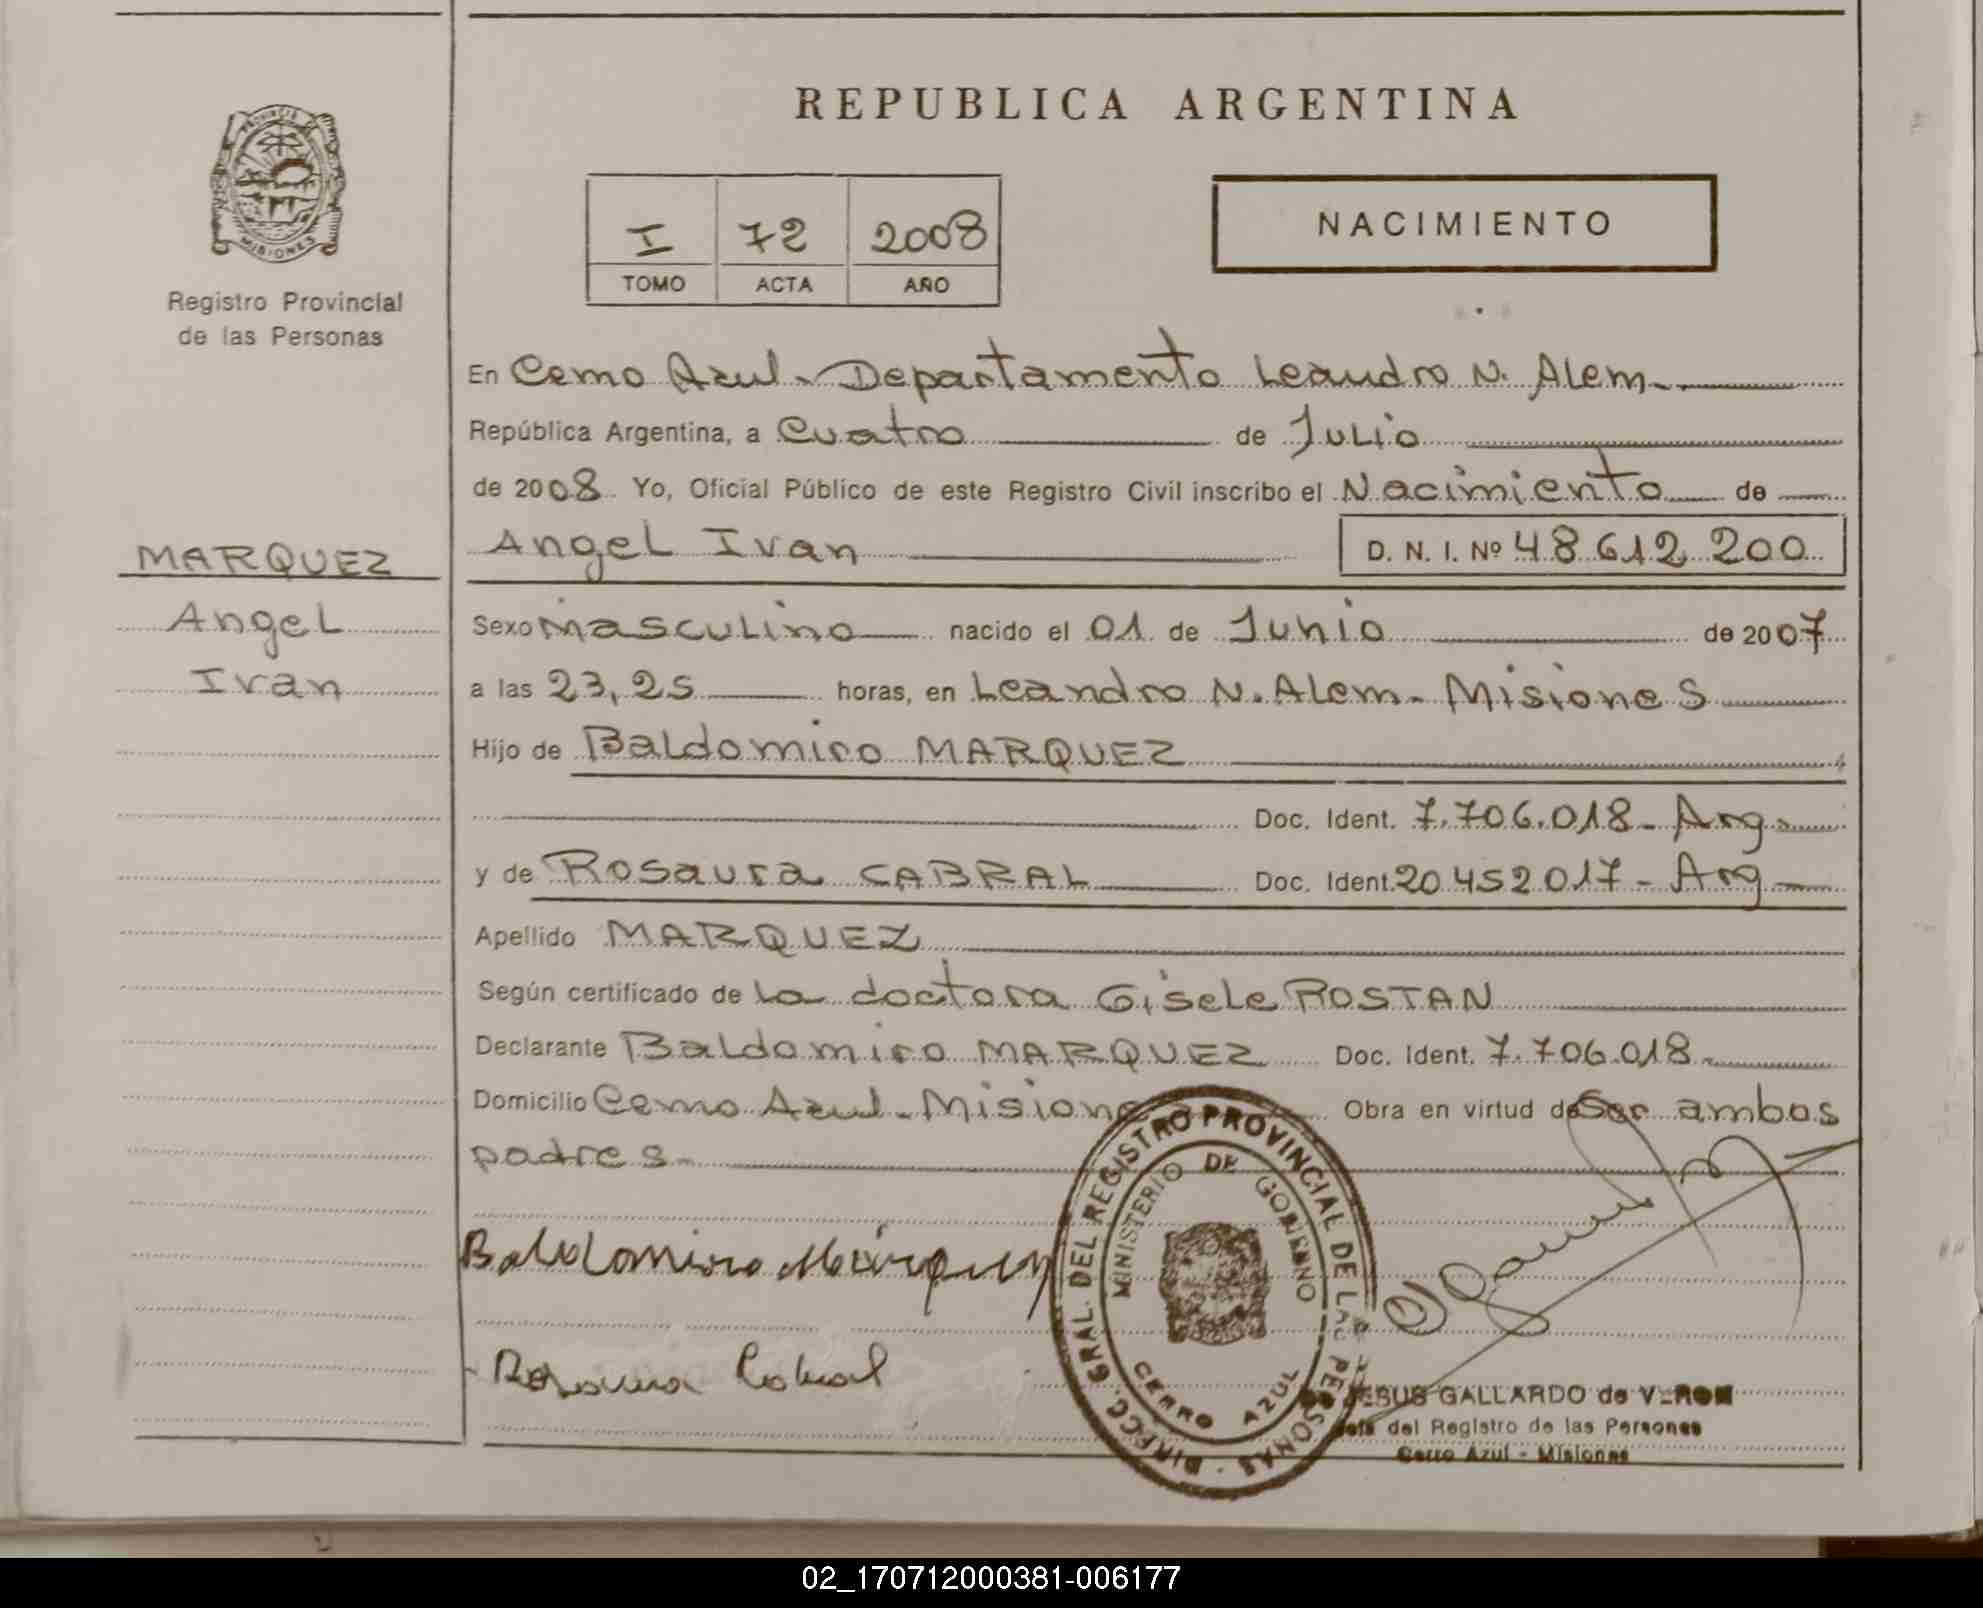 REPUBLICA ARGENTINA
PROVINCIA DE MISIONES
Registro Provincial
de las Personas
I 72 2008
TOMO ACTA AÑO
NACIMIENTO
En Cerro Azul - Departamento Leandro N. Alem -
República Argentina, a Cuatro de Julio
de 2008 Yo, Oficial Público de este Registro Civil inscribo el Nacimiento de
MARQUEZ
Angel
Ivan
Angel Ivan D. N. I. Nº 48 612 200
Sexo masculino nacido el 01 de Junio de 2007
a las 23,25 horas, en Leandro N. Alem - Misiones
Hijo de Baldomiro MARQUEZ
Doc. Ident. 7.706.018 - Arg.
y de Rosaura CABRAL Doc. Ident. 20452017 - Arg
Apellido MARQUEZ
Según certificado de la doctora Gisele ROSTAN
Declarante Baldomiro MARQUEZ Doc. Ident. 7.706.018 -
Domicilio Cerro Azul - Misiones Obra en virtud de Ser ambos
padres -
Baldomiro Márquez
Rosaura Cabral
DIRECC. GRAL. DEL REGISTRO PROVINCIAL DE LAS PERSONAS
MINISTERIO DE GOBIERNO
CERRO AZUL
JESUS GALLARDO de VERON
Jefe del Registro de las Personas
Cerro Azul - Misiones
02_170712000381-006177